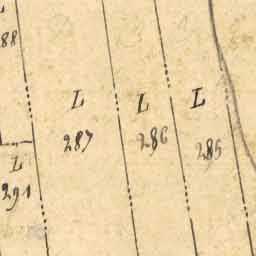 88
L
287
L
286
L
285
L
291